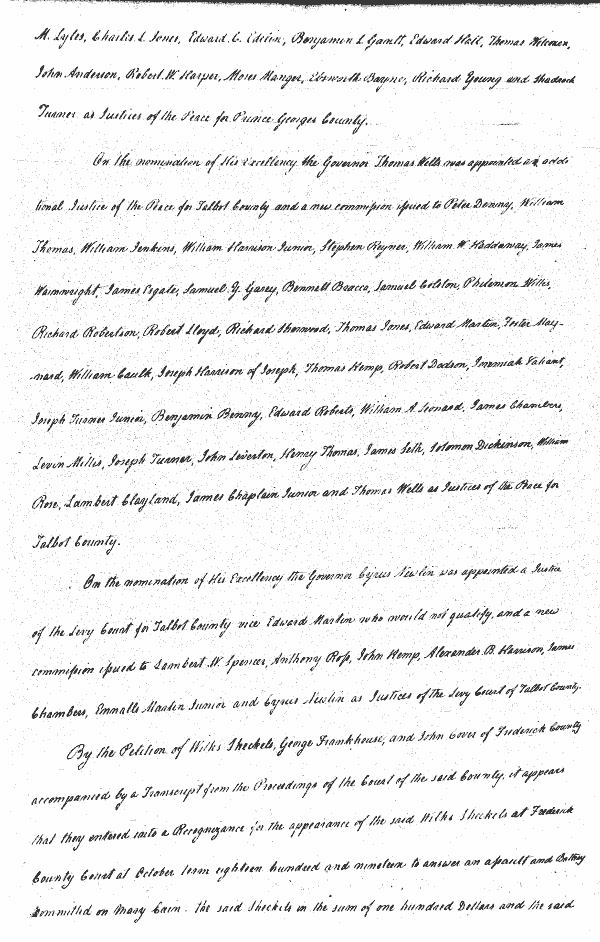 M. Lyles, Charles L Jones, Edward C. Edelin, Benjamin L Gantt, Edward Hall, Thomas Wilcoxen,
John Anderson, Robert W Harper, Moses Hanger, Ebsworth Bayne, Richard Young and Shadrach
Turner as Justices of the Peace for Prince Georges County.
On the nomination of His Excellency the Governor Thomas Wells was appointed an addi
tional Justice of the Peace for Talbot County and a new commission issued to Peter Denny, William
Thomas, William Jenkins, William Harrison Junior, Stephen Reyner, William W. Haddaway, James
Wainwright, James Esgate, Samuel Y. Garey, Bennett Bracco, Samuel Colston, Philemon Willis,
Richard Robertson, Robert Lloyd, Richard Sherwood, Thomas Jones, Edward Martin, Foster May-
nard, William Caulk, Joseph Harrison of Joseph, Thomas Kemp, Robert Dodson, Jeremiah Valiant,
Joseph Turner Junior, Benjamin Benny, Edward Roberts, William A Leonard, James Chambers,
Levin Millis, Joseph Turner, John Leverton, Henry Thomas, James Seth, Solomon Dickinson, William
Rose, Lambert Clayland, James Chaplain Junior and Thomas Wells as Justices of the Peace for
Talbot County.
On the nomination of His Excellency the Governor Cyrus Newlin was appointed a Justice
of the Levy Court for Talbot County vice Edward Martin who would not qualify, and a new
commission issued to Lambert W Spencer, Anthony Ross, John Kemp, Alexander B. Harrison, James
Chambers, Ennalls Martin Junior and Cyrus Newlin as Justices of the Levy Court of Talbot County.
By the Petition of Wilks Sheckels, George Frankhouse, and John Cover of Frederick County
accompanied by a Transcript from the Proceedings of the Court of the said County, it appears
that they entered into a Recognizance for the appearance of the said Wilks Sheckels at Frederick
County Court at October term eighteen hundred and nineteen to answer an assault and Battery
committed on Mary Cain. The said Sheckels in the sum of one hundred Dollars and the said